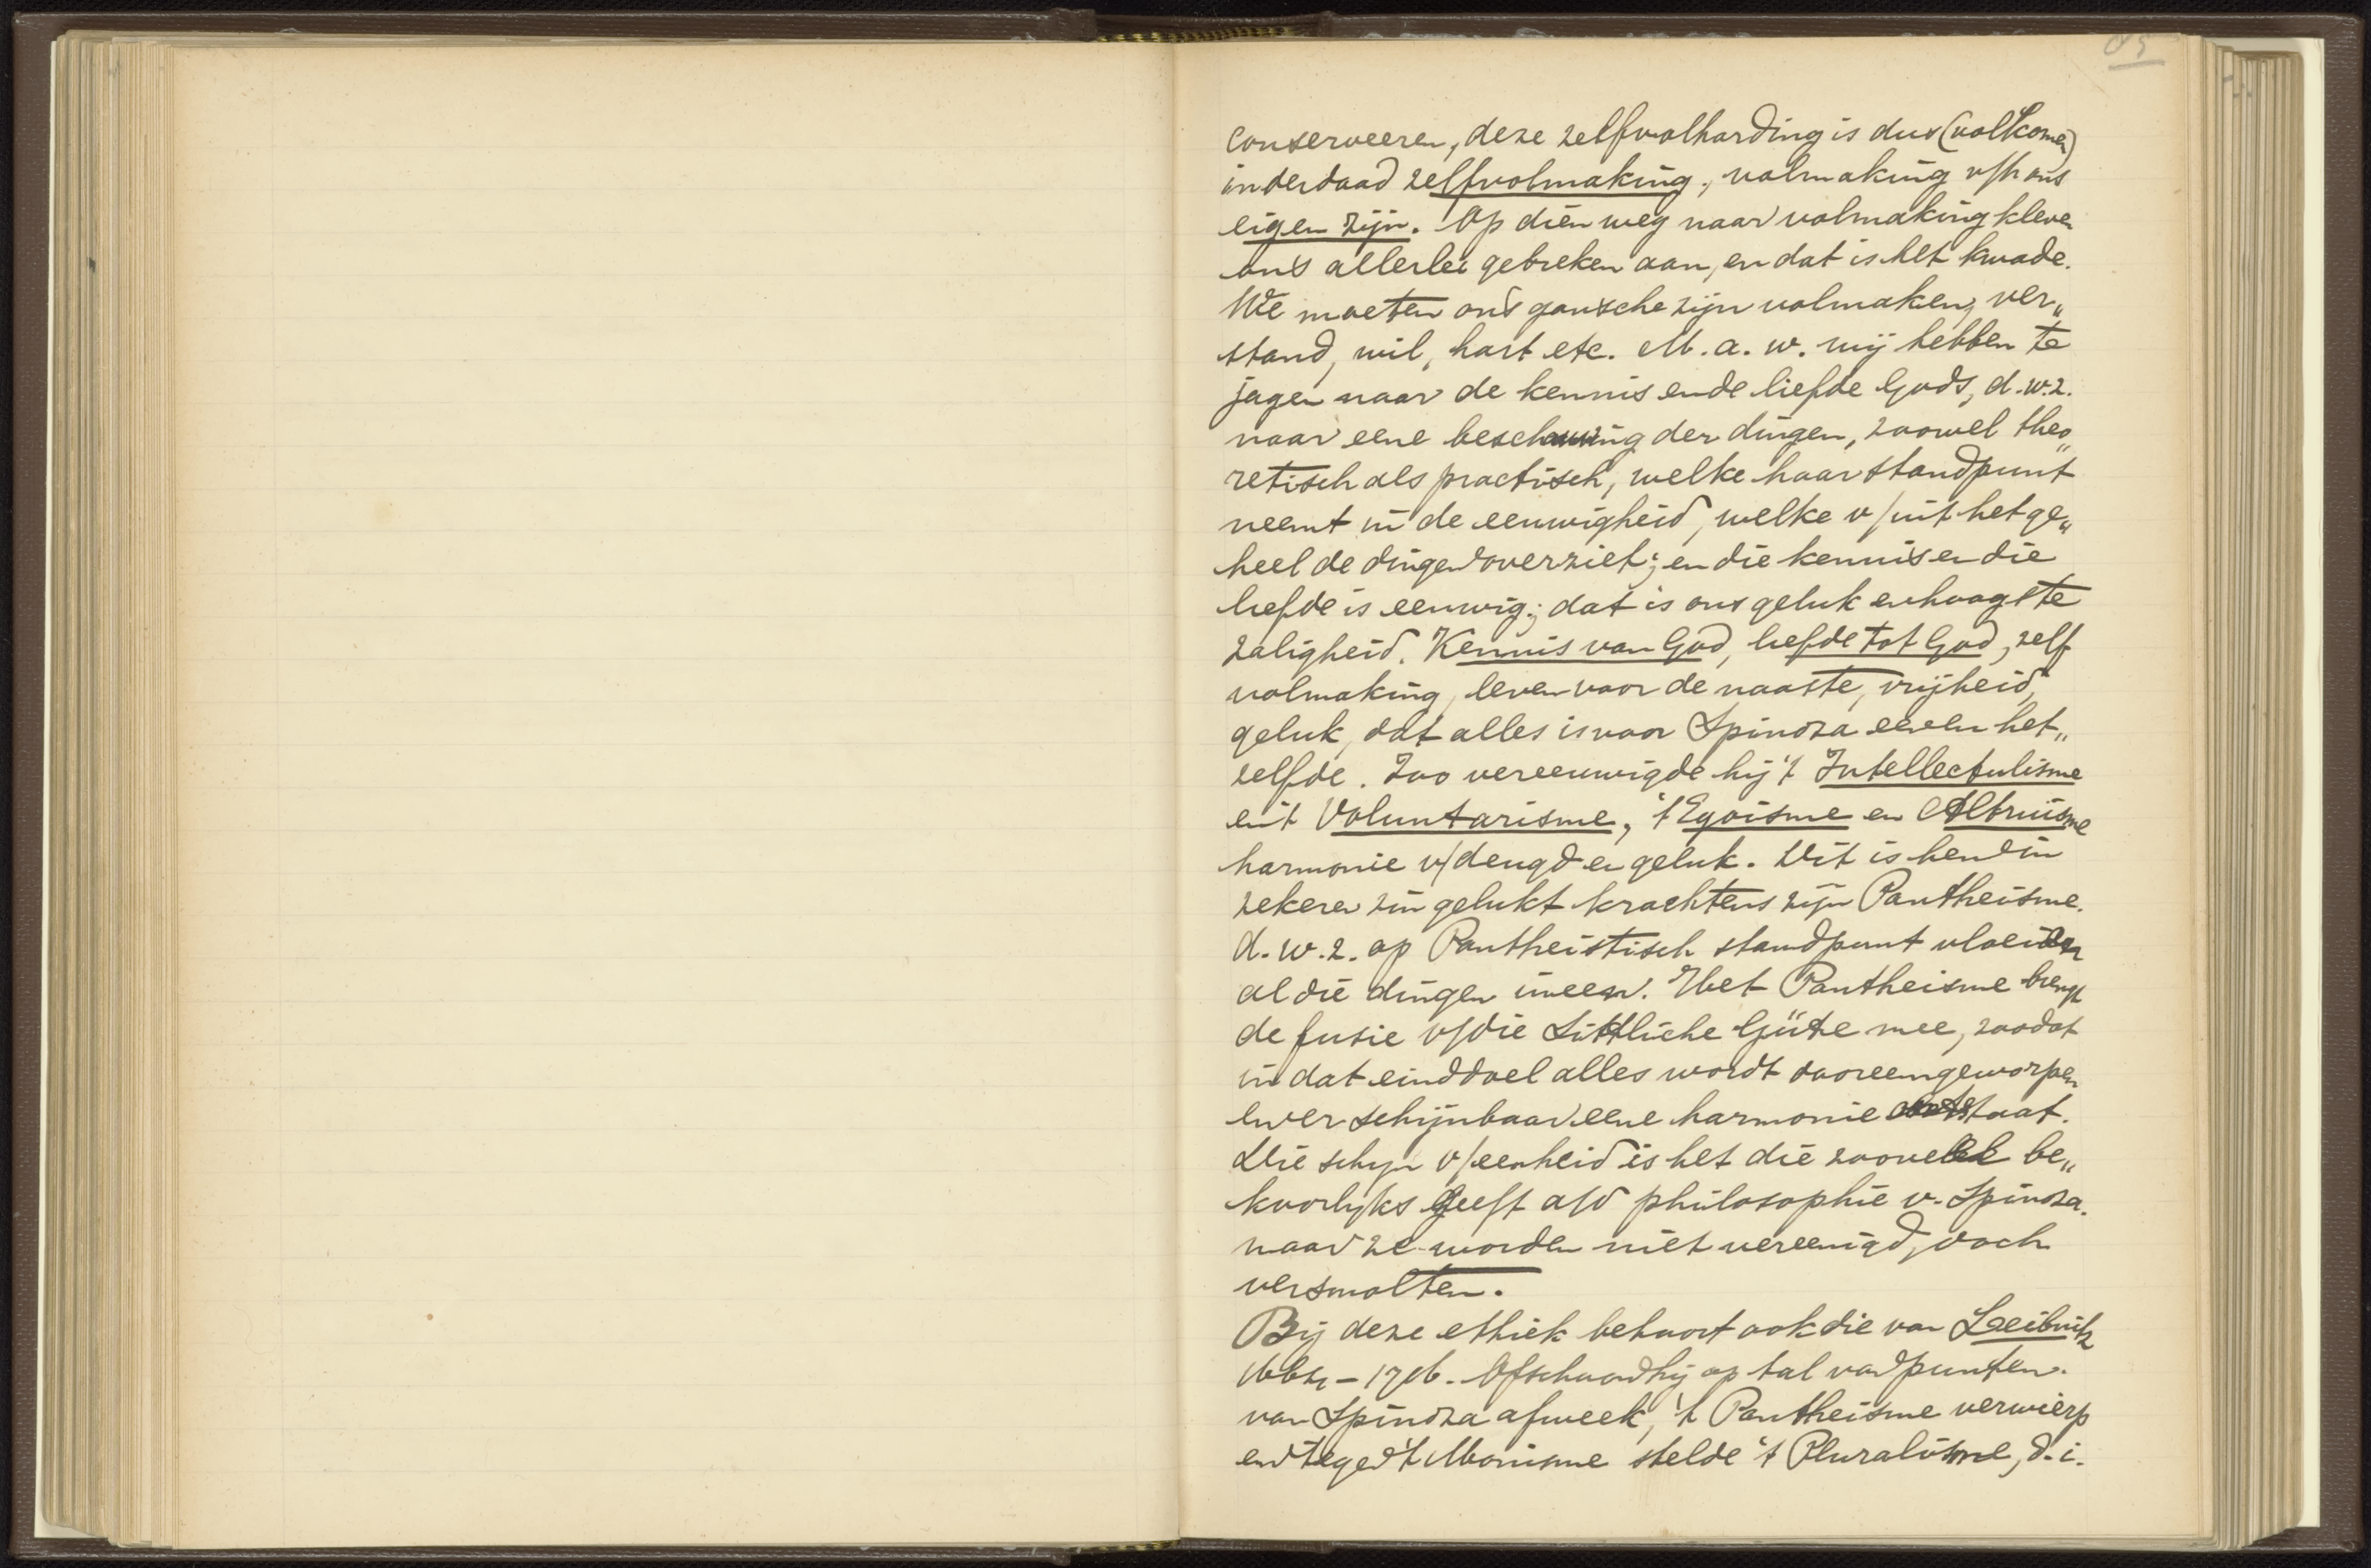 85
conserveeren, deze zelfvolharding is dus (volkomen)
inderdaad zelfvolmaking, volmaking v/h ons
eigen zijn. Op dien weg naar volmaking kleven
ons allerlei gebreken aan, en dat is het kwade.
We moeten ons gansche zijn volmaken, ver„
stand, wil, hart etc. M.a.w. wij hebben te
jagen naar de kennis en de liefde Gods, d.w.z.
naar eene beschouwing der dingen, zoowel theo„
retisch als practisch, welke haar standpunt
neemt in de eeuwigheid, welke v/uit het ge„
heel de dingen overziet; en die kennis en die
liefde is eeuwig; dat is ons geluk en hoogste
zaligheid. Kennis van God, liefde tot God, zelf
volmaking, leven voor de naaste, vrijheid,
geluk, dat alles is voor Spinoza een en het„
zelfde. Zoo vereeuwigde hij 't Intellectulisme
en 't Voluntarisme, 't Egoisme en Altruisme
harmonie v/ deugd en geluk. Dit is hem in
zekeren zin gelukt krachtens zijn Pantheisme.
d.w.z. op Pantheistisch standpunt vloeien
al die dingen ineen. Het Pantheisme brengt
de fusie v/die Sittliche Güte mee, zoodat
in dat einddoel alles wordt dooreengeworpen
en er schijnbaar eene harmonie ontstaat.
Die schijn v/eenheid is het die zooveel be„
koorlijks geeft a/d philosophie v. Spinoza.
maar ze worden niet vereenigd, doch
versmolten.
Bij deze ethiek behoort ook die van Leibnitz
1664 - 1716. Ofschoon hij op tal van punten
van Spinoza afweek, 't Pantheisme verwierp
en tegen 't Monisme stelde 't Pluralisme, d.i.